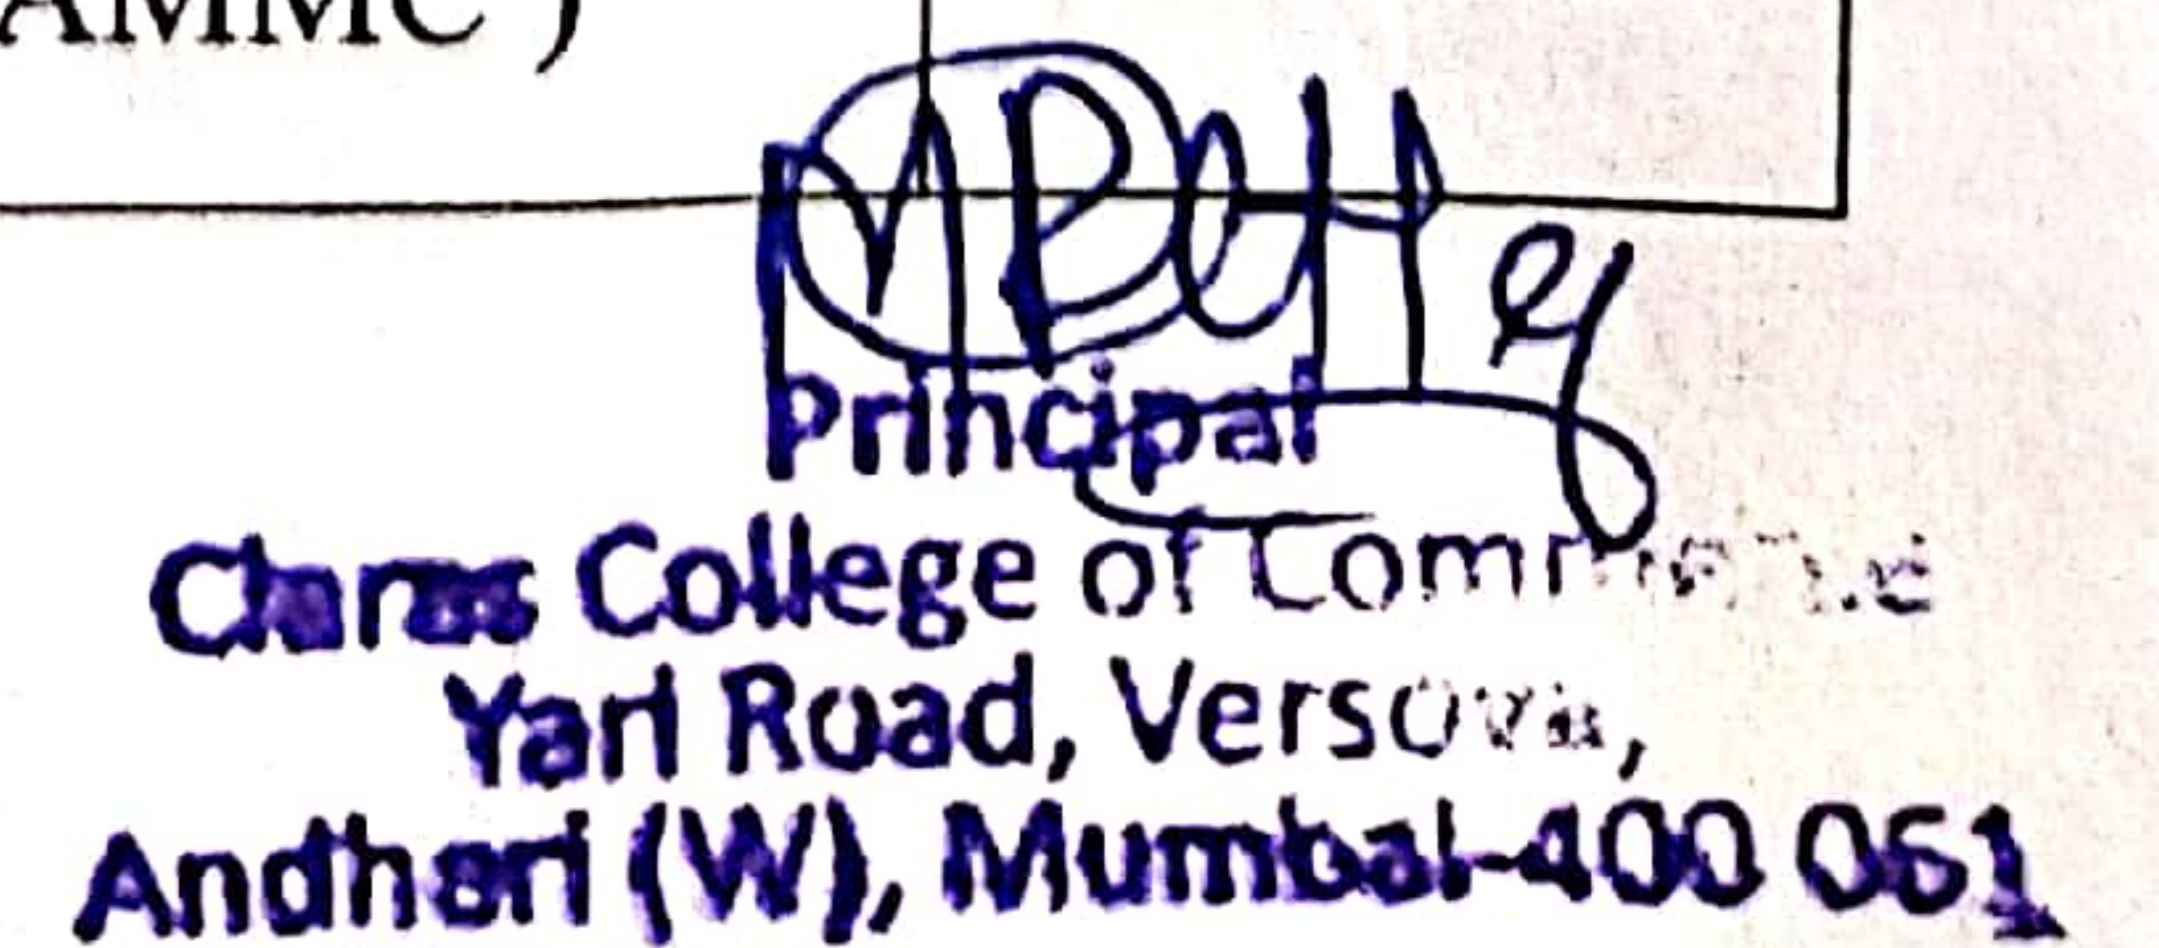 AMMC )
Principal
Claras College of Commerce
Yari Road, Versova,
Andheri (W), Mumbai-400 061